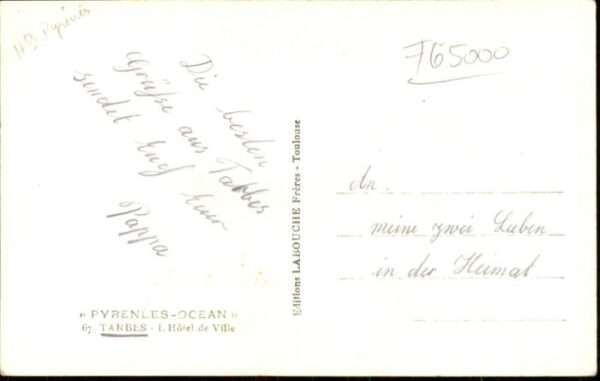 Hs Pyrénés
765000
Die besten
Grüße aus Tabbes
sendet Euch Euer
Pappa
Editions LABOUCHE Frères - Toulouse
An
meine zwei Lieben
in der Heimat
" PYRENEES-OCEAN "
67 TARBES - L'Hôtel de Ville